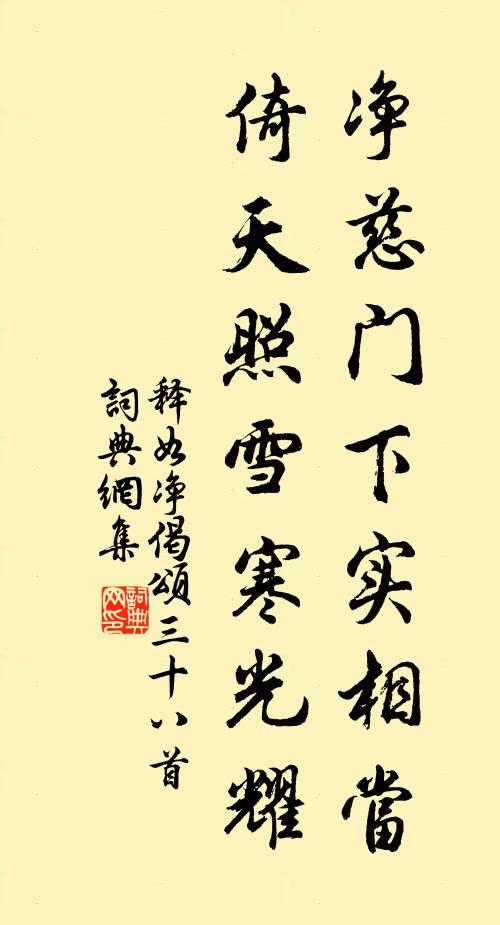 净慈门下实相當
倚天照雪寒光耀
释如净偈颂三十八首
詞典網集
詞典网印